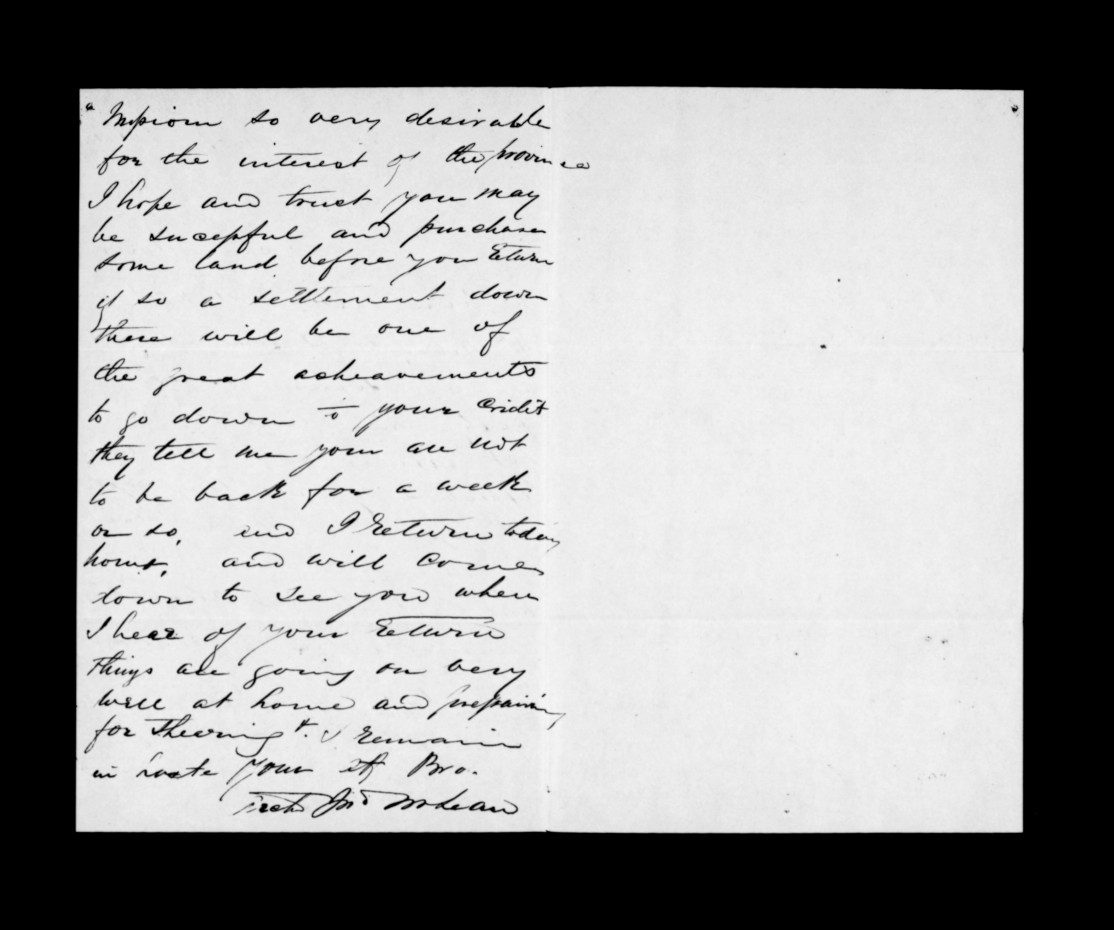 a Mission so very desirable
for the interest of the province
I hope and trust you may
be sucessful and purchase
some land before you return
if so a settlement down
there will be one of
the great acheavements
to go down to your credit
they tell me your are not
to be back for a week
or so, and I return today
home, and will come
down to see you when
I hear of your return
things are going on very
well at home and prepairing
for Shearing &. I remain
in haste your aff Bro.
Archd Jno McLean